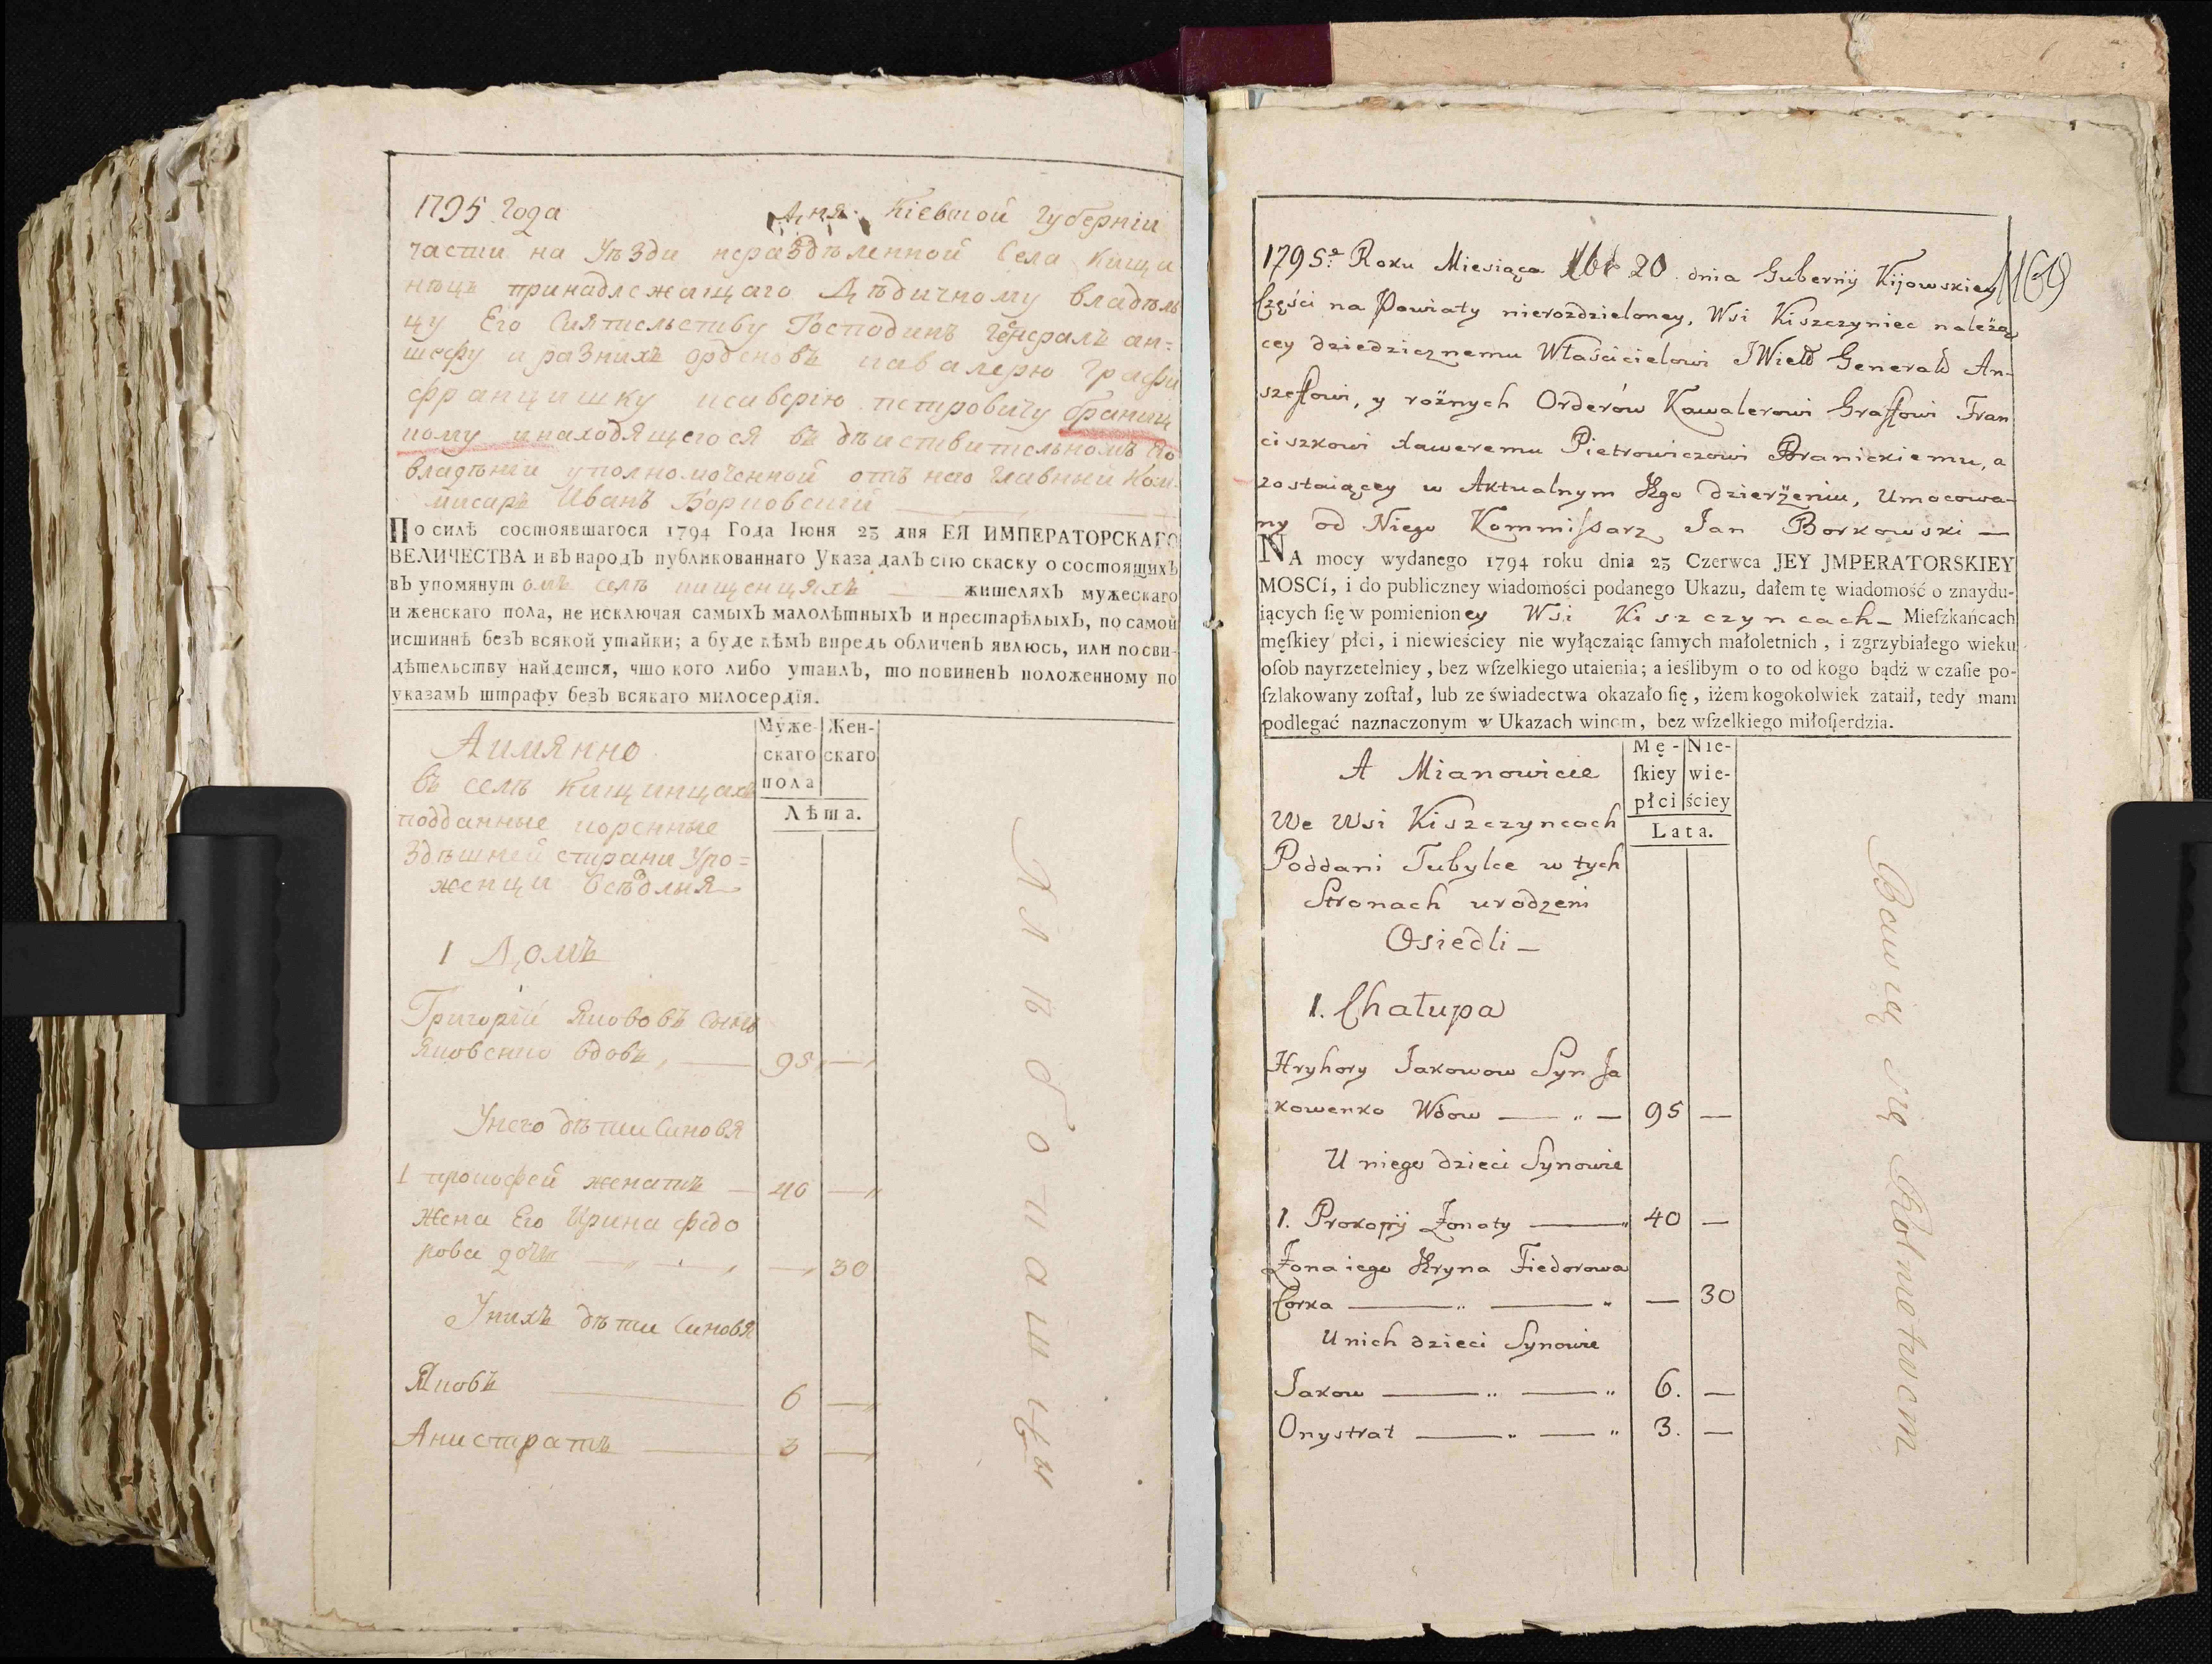 1795 года дня Кіевской губерніи
части на уѣзди нераздѣленной села Кищи
нецъ принадлежащаго дѣдичному владѣль
цу Его Сиятельству Господинъ Генералъ ан=
шефу и разнихъ орденовъ кавалерю графу
Францишку ксаверію петровичу браниц
кому инаходящегося въ дѣиствительномъ Его
владѣнии уполномоченной отъ него главний Ком
мисаръ Иванъ Борковский
По силѣ состоявшагося 1794 Года Іюня 23 дня ЕЯ ИМПЕРАТОРСКАГО
ВЕЛИЧЕСТВА и въ народъ публикованнаго Указа далъ сію скаску о состоящихъ
въ упомянутомъ селѣ кищенцяхъ жителяхъ мужескаго
и женскаго пола, не исключая самыхъ малолѣтныхъ и престарѣлыхъ, по самой
истиннѣ безъ всякой утайки; а буде кѣмъ впредь обличенъ явлюсь, или по сви-
дѣтельству найдется, что кого либо утаилъ, то повиненъ положенному по
указамъ штрафу безъ всякаго милосердїя.
Муже- Жен-
скаго скаго
пола
Лѣта.
Аимянно
въ селѣ Кищинцахъ
подданные коренные
здѣшней стирани уро=
женци осѣдлия
1 Домъ
Григорій Якововъ синъ
Яковенко вдовъ 95 —
Унего дѣти синовя
1 прокофей женатъ 40 —
Жена Его Ирина фідо
рова дочь — 30
Унихъ дѣти синовя
Яковъ 6 —
Анистратъ 3 —
Хлѣбопашцы
1169
1795.º Roku Miesiąca Xbr 20 dnia Gubernij Kijowskiey
Części na Powiaty nierozdzieloney, Wsi Kiszczyniec należą
cey dziedzicznemu Właścicielowi JWielº Generałº An-
szeffowi, y rożnych Orderów Kawalerowi Graffowi Fran
ciszkowi Xaweremu Pietrowiczowi Branickiemu, a
zostaiącey w Aktualnym Jego dzierżeniu, Umocowa-
ny od Niego Kommissarz Jan Borkowski —
NA mocy wydanego 1794 roku dnia 23 Czerwca JEY JMPERATORSKIEY
MOSCí, i do publiczney wiadomości podanego Ukazu, dałem tę wiadomość o znaydu-
iących ſię w pomienioney Wsi Kiszczyncach — Mieſzkańcach
męſkiey płci, i niewieściey nie wyłączaiąc ſamych małoletnich, i zgrzybiałego wieku
oſob nayrzetelniey, bez wſzelkiego utaienia; a ieślibym o to od kogo bądź w czaſie po-
ſzlakowany zoſtał, lub ze świadectwa okazało ſię, iżem kogokolwiek zataił, tedy mam
podlegać naznaczonym w Ukazach winom, bez wſzelkiego miłoſierdzia.
Mę- Nie-
ſkiey wie-
płci ściey
Lata.
A Mianowicie
We Wsi Kiszczyncach
Poddani Tubylce w tych
Stronach urodzeni
Osiedli —
1. Chałupa
Hryhory Jakowow Syn Ja
kowenko Wdow — 95 —
U niego dzieci Synowie
1. Prokopij Żonaty — 40 —
Żona iego Jryna Fiedorowa
Corka — — 30
U nich dzieci Synowie
Jakow — 6. —
Onystrat — 3. —
Bawią się Rolnictwem